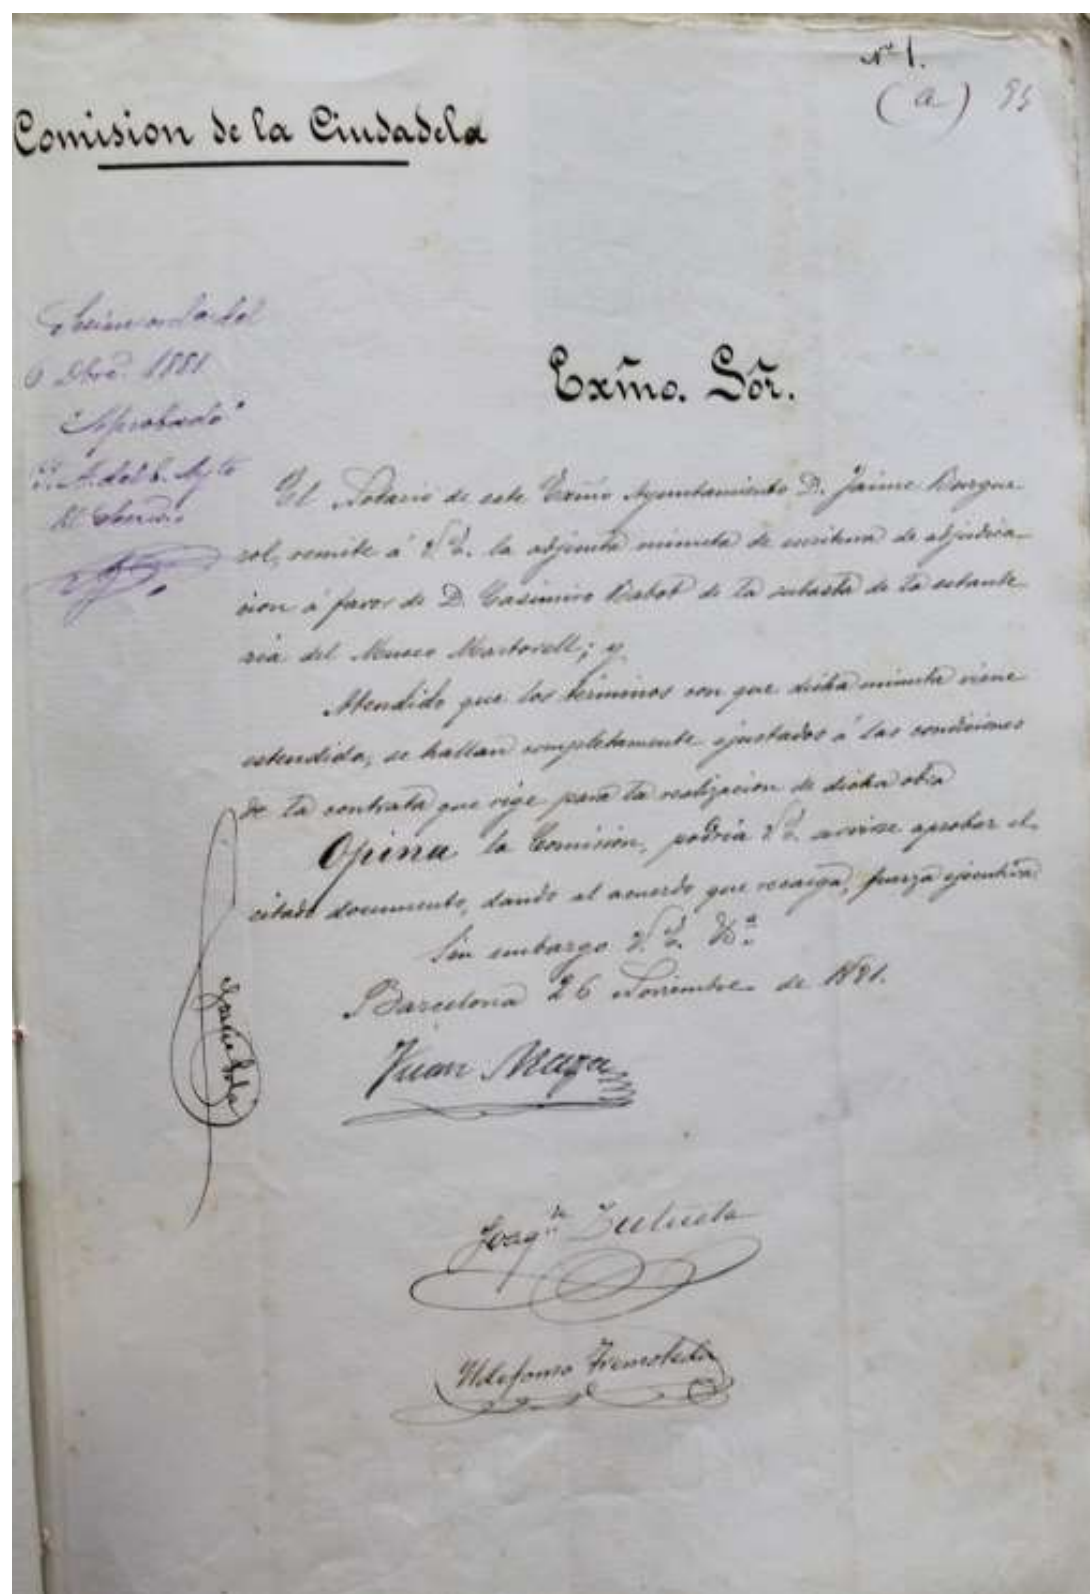 Nº 1.
(a)
Comision de la Ciudadela
Sesion del
6 Dbre. 1881
"Aprobado"
P. A. del E. Ayto
El Secrio
Exm̃o. Sõr.
El Notario de este Exm̃o Ayuntamiento D. Jaime Burgue-
rol, remite á V.E. la adjunta minuta de escritura de adjudica-
cion á favor de D. Casimiro Babot de la subasta de la estante-
ria del Museo Martorell; y
Atendido que los términos con que dicha minuta viene
estendida, se hallan completamente ajustados á las condiciones
de la contrata que rige para la realizacion de dicha obra
Opina la Comision, podria V.E. servirse aprobar el
citado documento, dando al acuerdo que recaiga, fuerza ejecutiva
Sin embargo V.E. &ª
Barcelona 26 Noviembre de 1881.
Juan
Ildefonso Tremoleda